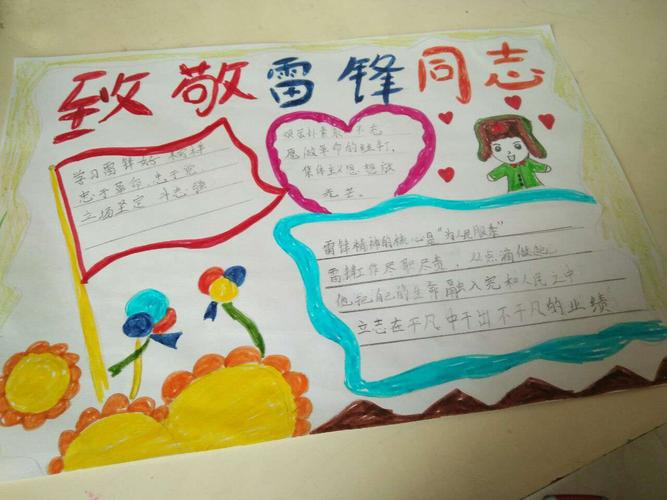 致敬雷锋同志
学习雷锋好榜样
忠于革命 忠于党
立场坚定 斗志强
艰苦朴素永不忘
愿做革命的螺丝钉,
集体主义思想放
光芒。
雷锋精神的核心是“为人民服务”
雷锋工作尽职尽责 从点滴做起
他把自己的生命融入党和人民之中
立志在平凡中干出不平凡的业绩